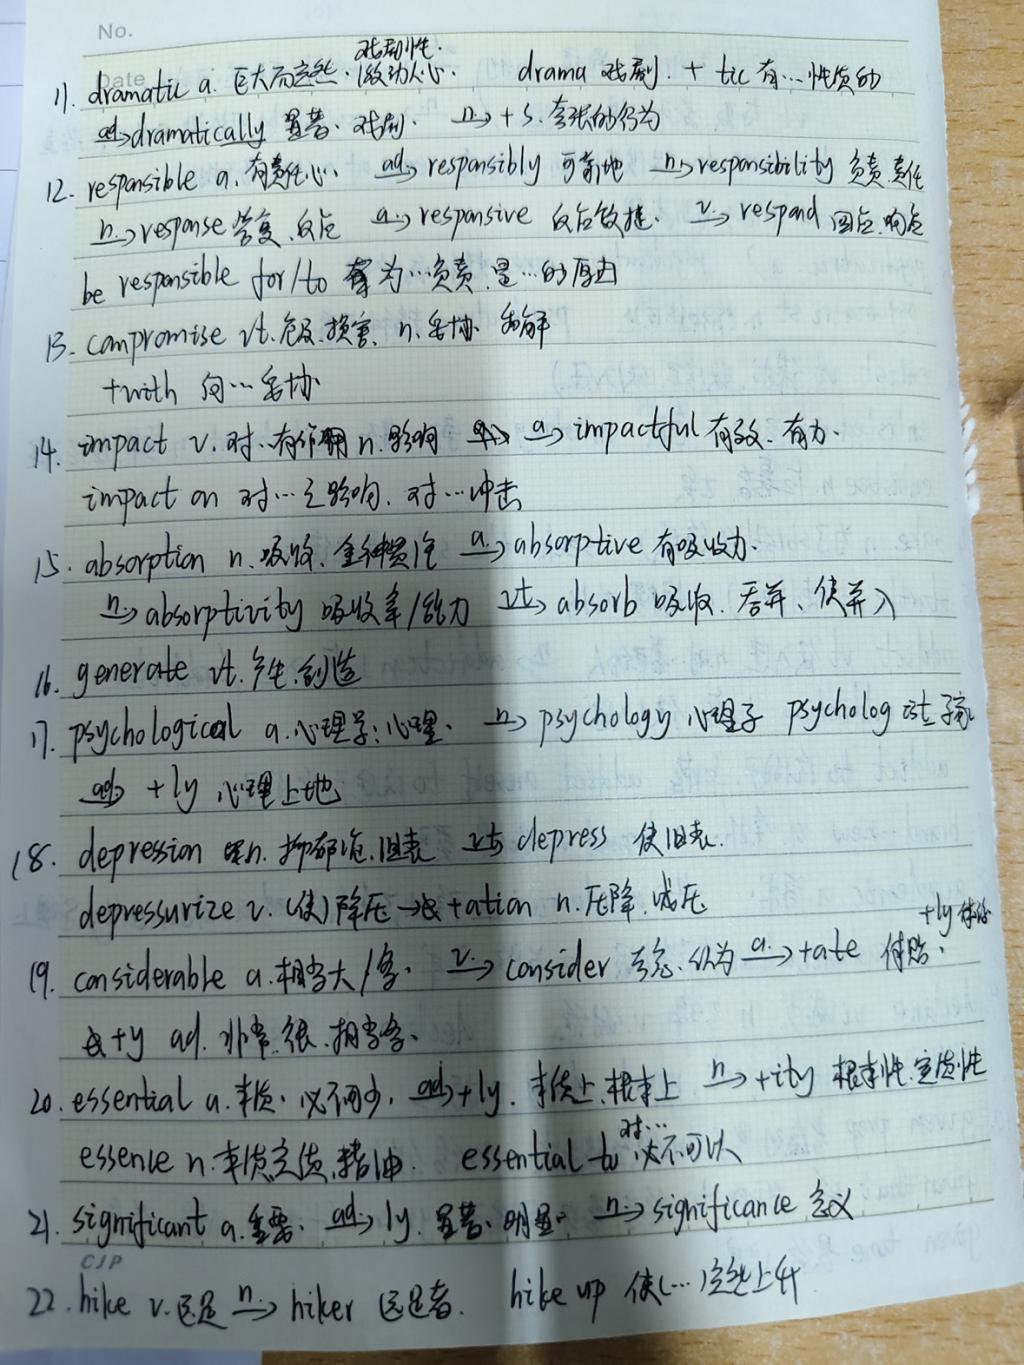 No.
Date
戏剧性.
11. dramatic a. 巨大而突然. 激动人心. drama 戏剧. + tic 有…性质的
ad→dramatically 显著. 戏剧. n→ +s. 夸张的行为
12. responsible a. 有责任心. ad→ responsibly 可靠地 n→responsibility 负责.责任
n→response 答复.反应 a→ responsive 反应敏捷. v→ respond 回应.响应
be responsible for/to 为…负责.是…的原由
13. compromise vt.危及.损害. n.妥协 和解
+with 向…妥协
14. impact v. 对…有作用 n.影响 a→ impactful 有效. 有力.
impact on 对…之影响. 对…冲击
15. absorption n.吸收. 全神贯注 a→ absorptive 有吸收力.
n→ absorptivity 吸收率/能力 vt→ absorb 吸收. 吞并、使并入
16. generate vt.产生.创造
17. psychological a.心理学;心理. n→ psychology 心理学 psycholog
ad→ +ly 心理上地
18. depression n. 抑郁症.沮丧 vt→ depress 使沮丧.
depressurize v. (使)降压 → +ation n.压降.减压
+ly 体贴
19. considerable a.相当大/多. v→ consider 考虑.认为 a→ +ate 体贴.
+y ad. 非常.很.相当多.
20. essential a.本质. 必不可少. ad→+ly. 本质上.根本上 n→ +ity 根本性.实质性
对…
essence n.本质.实质.精油. essential to 必不可以
21. significant a.重要. ad→ ly. 显著.明显. n→ significance 意义
CJP
22. hike v.远足 n→ hiker 远足者. hike up 使(…)突然上升